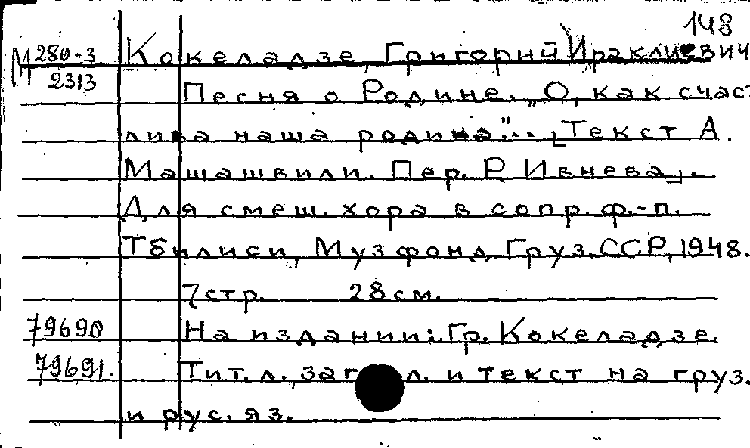 148
М 280-3
2313
Кокеладзе, Григорий Ираклиевич
Песня о Родине. „О, как счаст
лива наша родина"... [Текст А.
Машашвили. Пер. Р. Ивнева].
Для смеш. хора в сопр. ф.-п.
Тбилиси, Музфонд Груз.ССР, 1948.
7 стр. 28 см.
79690 На издании: Гр. Кокеладзе.
79691. Тит. л., л. и текст на груз.
и рус. яз.